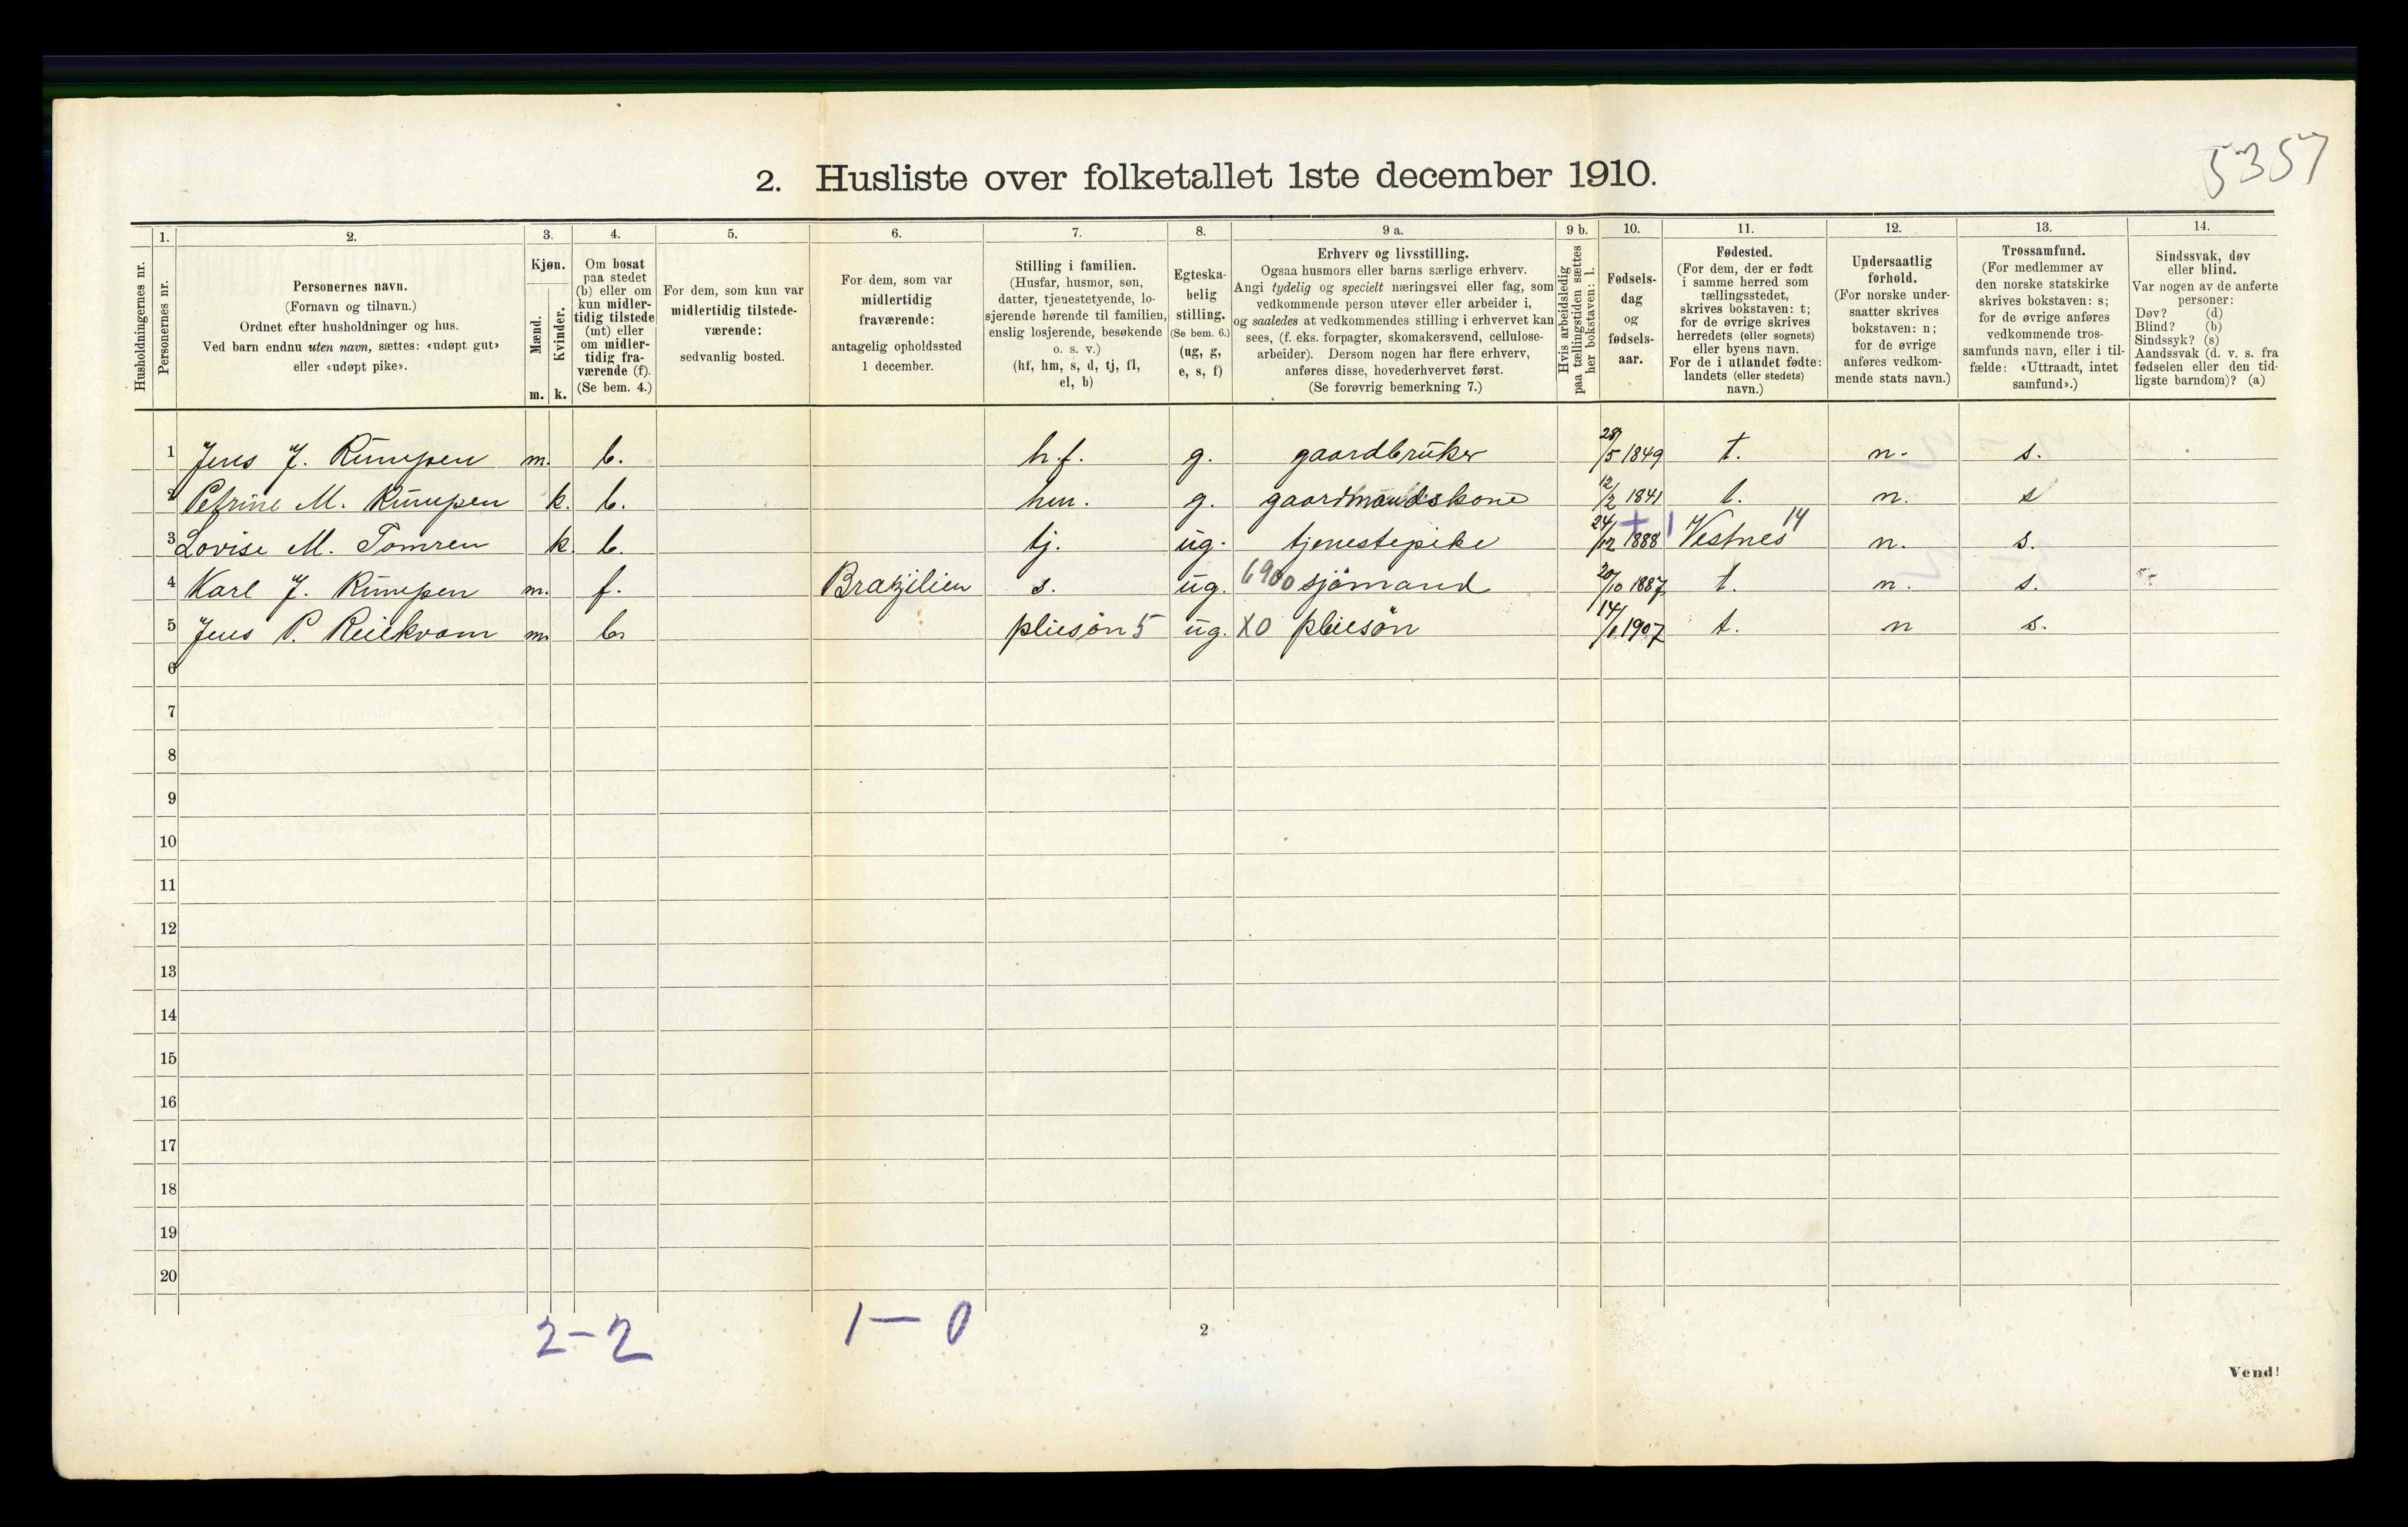 5357
2. Husliste over folketallet 1ste december 1910.
Husholdningernes nr.
1.
Personernes nr.
2.
Personernes navn.
(Fornavn og tilnavn.)
Ordnet efter husholdninger og hus.
Ved barn endnu uten navn, sættes: «udøpt gut»
eller «udøpt pike».
3.
Kjøn.
Mænd.
Kvinder.
m. k.
4.
Om bosat
paa stedet
(b) eller om
kun midler-
tidig tilstede
(mt) eller
om midler-
tidig fra-
værende (f).
(Se bem. 4.)
5.
For dem, som kun var
midlertidig tilstede-
værende:
sedvanlig bosted.
6.
For dem, som var
midlertidig
fraværende:
antagelig opholdssted
1 december.
7.
Stilling i familien.
(Husfar, husmor, søn,
datter, tjenestetyende, lo-
sjerende hørende til familien,
enslig losjerende, besøkende
o. s. v.)
(hf, hm, s, d, tj, fl,
el, b)
8.
Egteska-
belig
stilling.
(Se bem. 6.)
(ug, g,
e, s, f)
9 a.
Erhverv og livsstilling.
Ogsaa husmors eller barns særlige erhverv.
Angi tydelig og specielt næringsvei eller fag, som
vedkommende person utøver eller arbeider i,
og saaledes at vedkommendes stilling i erhvervet kan
sees, (f. eks. forpagter, skomakersvend, cellulose-
arbeider). Dersom nogen har flere erhverv,
anføres disse, hovederhvervet først.
(Se forøvrig bemerkning 7.)
9 b.
Hvis arbeidsledig
paa tællingstiden sættes
her bokstaven: l.
10.
Fødsels-
dag
og
fødsels-
aar.
11.
Fødested.
(For dem, der er født
i samme herred som
tællingsstedet,
skrives bokstaven: t;
for de øvrige skrives
herredets (eller sognets)
eller byens navn.
For de i utlandet fødte:
landets (eller stedets)
navn.)
12.
Undersaatlig
forhold.
(For norske under-
saatter skrives
bokstaven: n;
for de øvrige
anføres vedkom-
mende stats navn.)
13.
Trossamfund.
(For medlemmer av
den norske statskirke
skrives bokstaven: s;
for de øvrige anføres
vedkommende tros-
samfunds navn, eller i til-
fælde: «Uttraadt, intet
samfund».)
14.
Sindssvak, døv
eller blind.
Var nogen av de anførte
personer:
Døv? (d)
Blind? (b)
Sindssyk? (s)
Aandssvak (d. v. s. fra
fødselen eller den tid-
ligste barndom)? (a)
1 Jens J. m. b. h.f. g. gaardbruker 28/5 1849 t. n. s.
2 Petrine M. k. b. hm. g. gaardmandskone 12/2 1841 t. n. s
3 Lovise M. Tomren k. b. tj. ug. tjenestepike 24/12 1888 Vestnes 14 n. s.
4 Karl J. m. f. Brazilien s. ug. 6900 sjömand 20/10 1887 t. n. s.
5 Jens P. m. b. pleiesön 5 ug. X0 pleiesön 14/1 1907 t. n s.
6
7
8
9
10
11
12
13
14
15
16
17
18
19
20
2 - 2 1 - 0
2
Vend!